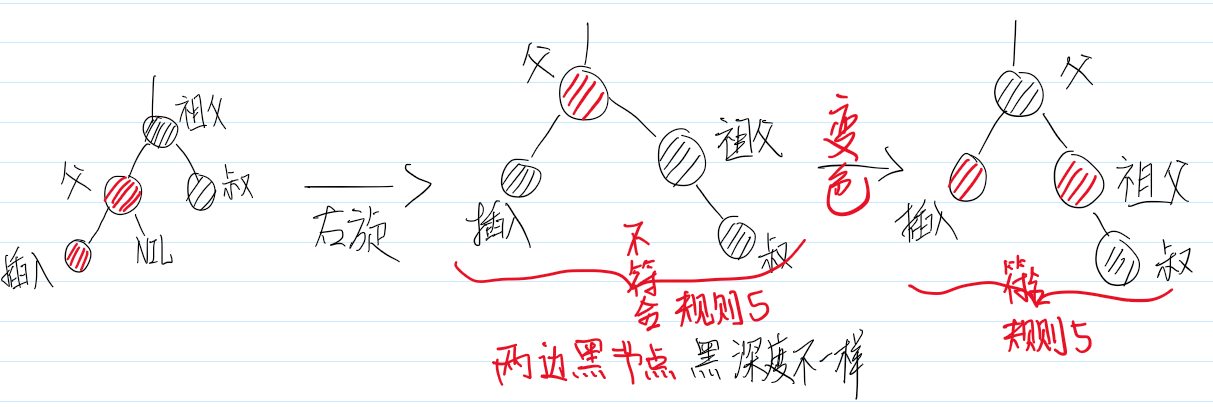 祖父
父
叔
插入
NIL
右旋
父
祖父
插入
叔
不符合 规则5
两边黑节点 黑深度不一样
变色
父
祖父
插入
叔
符合
规则5